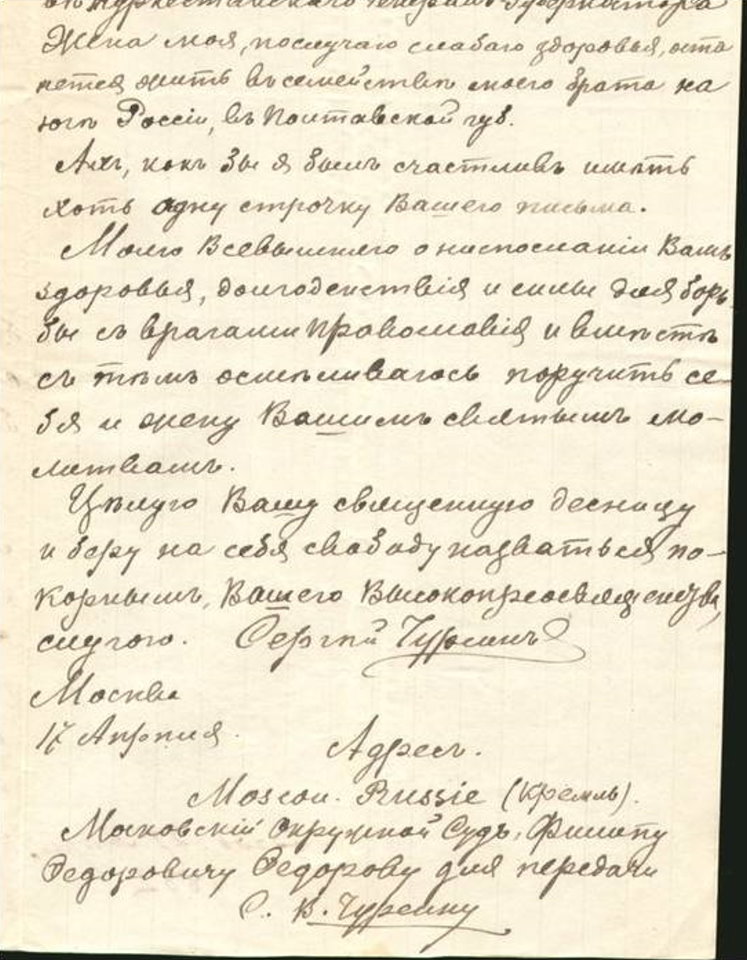 въ Туркестанскаго Генералъ Губернатора
Жена моя, послучаю слабаго здоровья, оста
нется жить въ семействѣ моего брата на
югѣ Россіи, въ Полтавской губ.
Ахъ, какъ бы я былъ счастливъ имѣть
хоть одну строчку Вашего письма.
Молю Всевышняго о ниспосланіи Вамъ
здоровья, долгоденствія и силы для борь-
бы съ врагами православія и вмѣстѣ
съ тѣмъ осмѣливаюсь поручить се-
бя и жену Вашимъ святымъ мо-
литвамъ.
Цѣлую Вашу священную десницу
и беру на себя свободу назваться по-
корнымъ, Вашего Высокопреосвященства,
слугою. Сергѣй Чурсинъ
Москва
17 Апрѣля.
Адресъ.
Moscou. Russie (Кремль).
Московскій Окружной Судъ, Филипу
Федоровичу Федорову для передачи
С. В. Чурсину